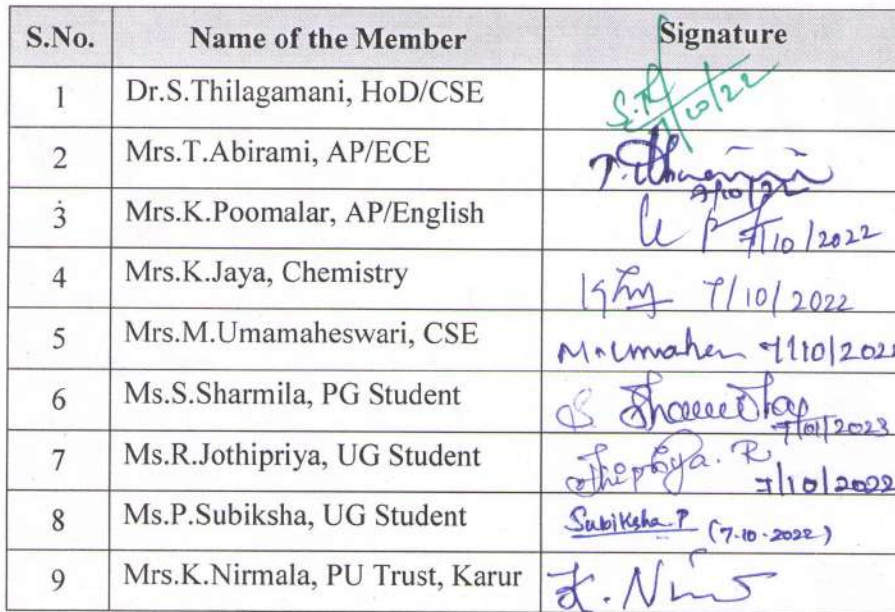 S.No. Name of the Member Signature
1 Dr.S.Thilagamani, HoD/CSE 7/10/22
2 Mrs.T.Abirami, AP/ECE 7/10/22
3 Mrs.K.Poomalar, AP/English 7/10/2022
4 Mrs.K.Jaya, Chemistry 7/10/2022
5 Mrs.M.Umamaheswari, CSE 7/10/202
6 Ms.S.Sharmila, PG Student 7/01/2023
7 Ms.R.Jothipriya, UG Student Jothipriya. R 7/10/2022
8 Ms.P.Subiksha, UG Student Subiksha.P (7-10-2022)
9 Mrs.K.Nirmala, PU Trust, Karur